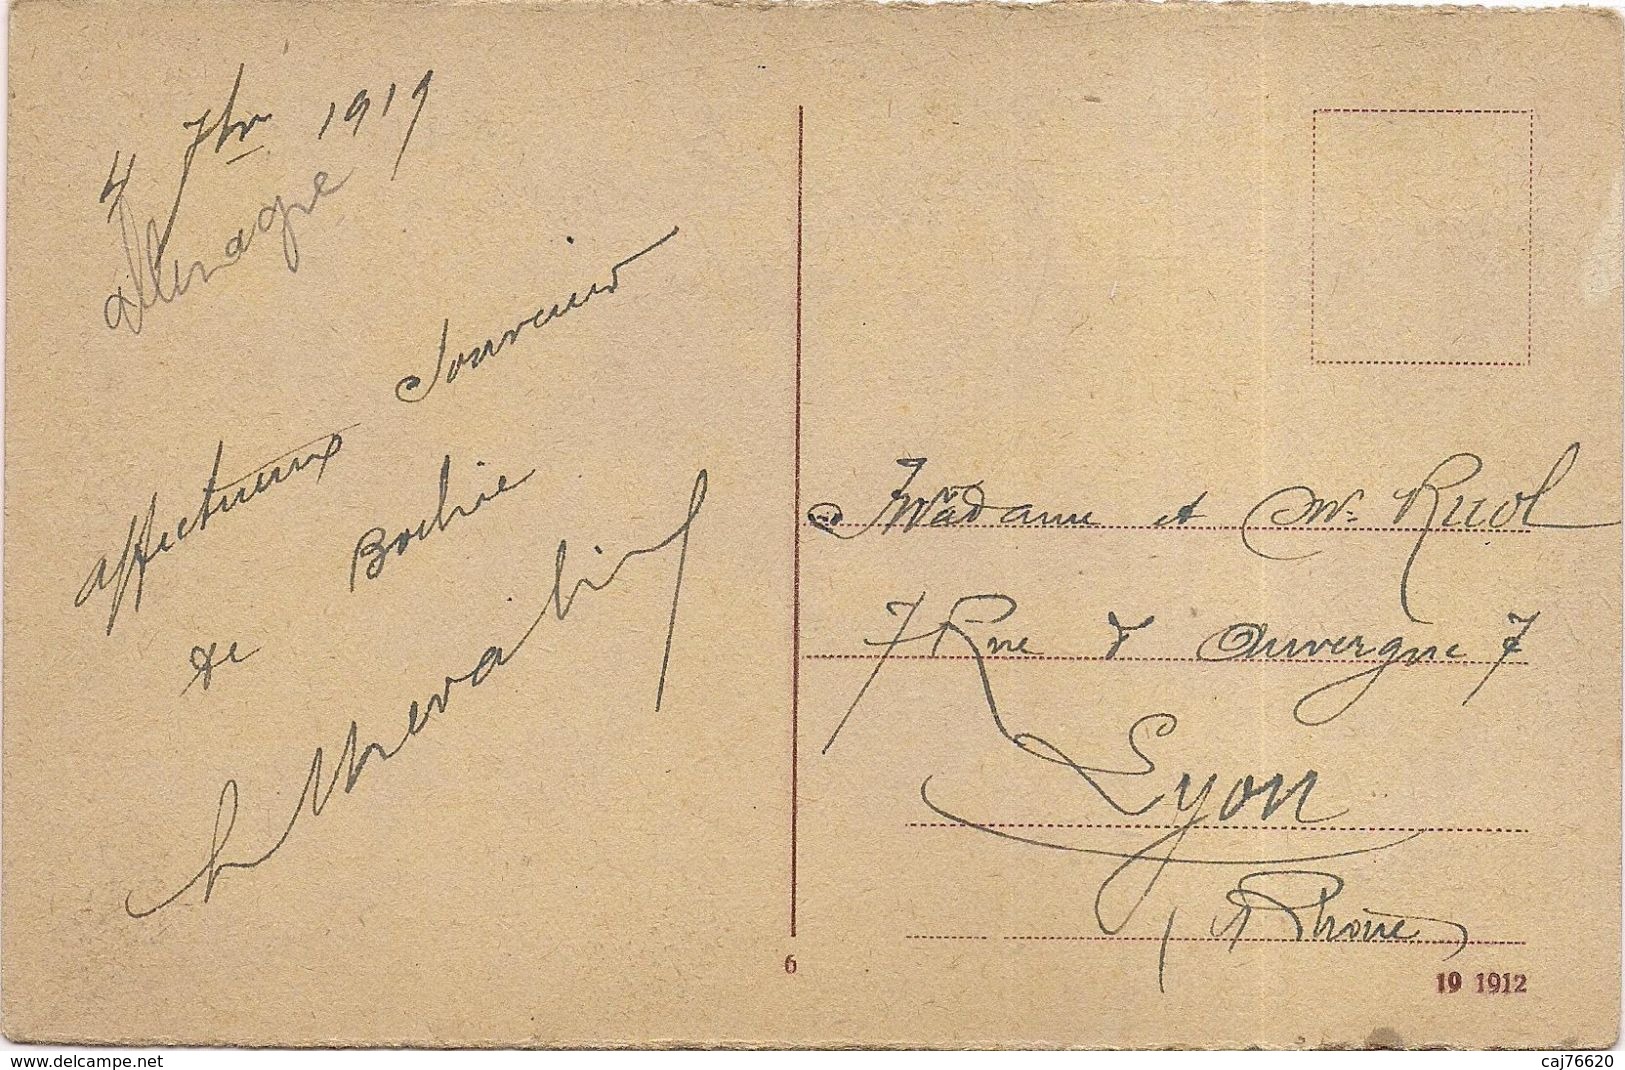 4 7bre 1919
Allemagne
affectueux Souvenir
de Bochie
Madame et Mr. Ruol
7 Rue d'Auvergne 7
Lyon
(Rhône)
6
19 1912
www.delcampe.net
caj76620